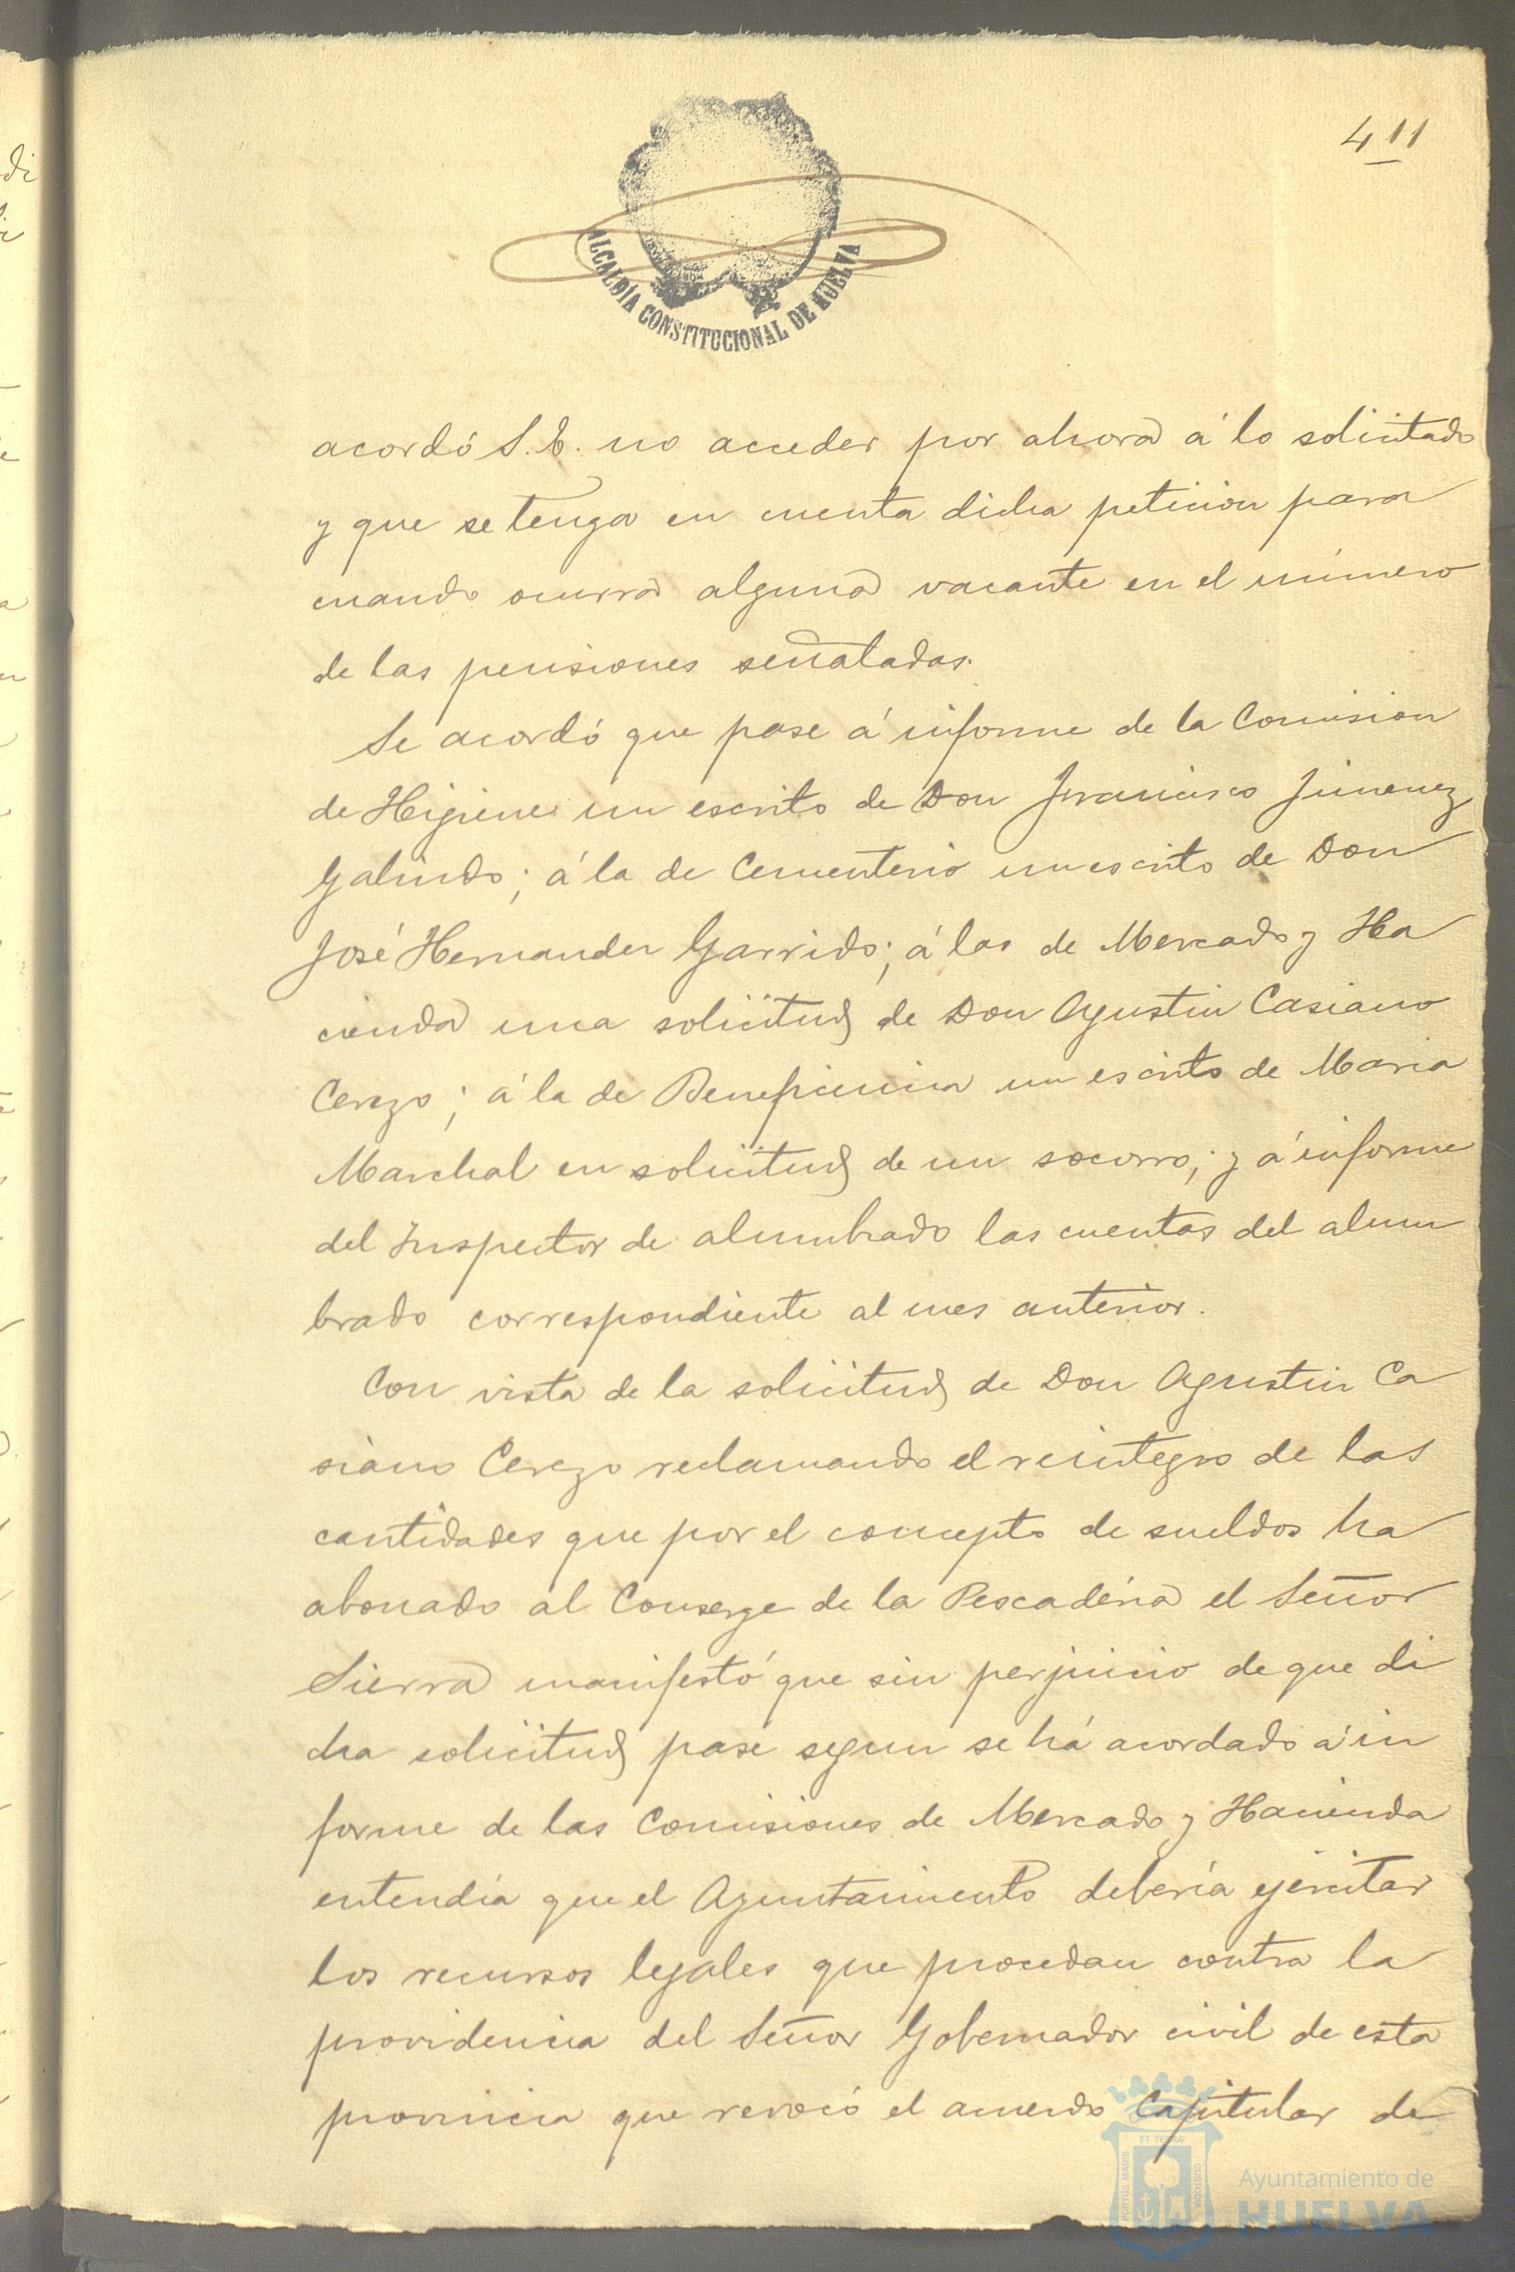 411
ALCALDÍA CONSTITUCIONAL DE HUELVA
acordó S.E. no acceder por ahora á lo solicitado
y que se tenga en cuenta dicha peticion para
cuando ocurra alguna vacante en el número
de las pensiones señaladas.
Se acordó que pase á informe de la Comision
de Higiene un escrito de Don Francisco Jimenez
Galindo; á la de Cementerio un escrito de Don
José Hernandez Garrido; á las de Mercado y Ha
cienda una solicitud de Don Agustin Casiano
Cerezo; á la de Beneficencia un escrito de Maria
Marchal en solicitud de un socorro; y á informe
del Inspector de alumbrado las cuentas del alum
brado correspondiente al mes anterior.
Con vista de la solicitud de Don Agustin Ca
siano Cerezo reclamando el reintegro de las
cantidades que por el concepto de sueldos ha
abonado al Conserge de la Pescadería el Señor
Sierra manifestó que sin perjuicio de que di
cha solicitud pase segun se há acordado á in
forme de las Comisiones de Mercado y Hacienda
entendía que el Ayuntamiento debería ejercitar
los recursos legales que procedan contra la
providencia del Señor Gobernador civil de esta
provincia que revocó el acuerdo Capitular de
PORTUS MARIS
ET TERRÆ
CUSTODIA
Ayuntamiento de
HUELVA